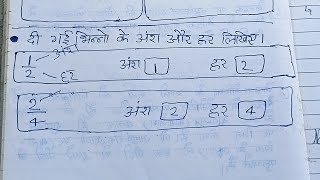 • दी गई भिन्नो के अंश और हर लिखिए।
1/2 अंश हर अंश 1 हर 2
2/4 अंश 2 हर 4